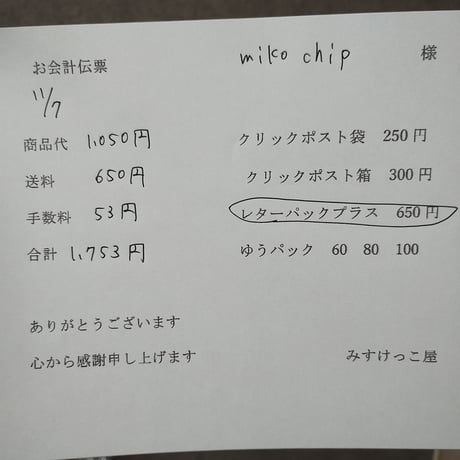 お会計伝票
miko chip 様
11/7
商品代 1,050円
クリックポスト袋 250円
送料 650円
クリックポスト箱 300円
手数料 53円
レターパックプラス 650円
合計 1,753円
ゆうパック 60 80 100
ありがとうございます
心から感謝申し上げます
みすけっこ屋